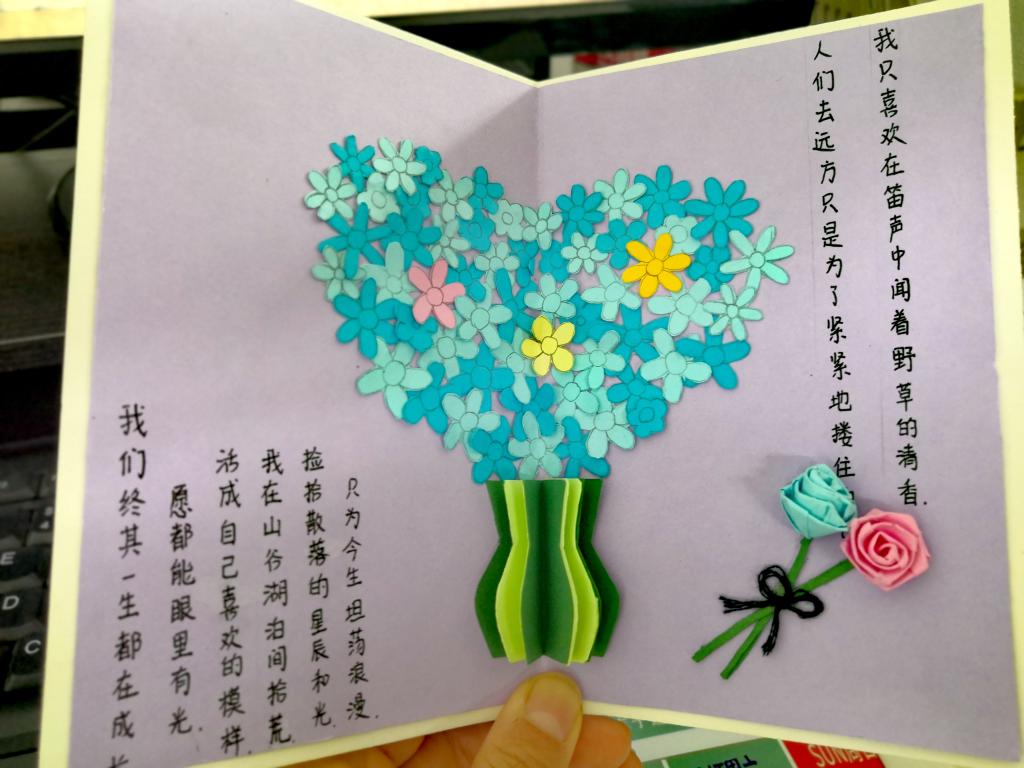 我们终其一生都在成
愿都能眼里有光.
活成自己喜欢的模样.
我在山谷湖泊间拾荒.
捡拾散落的星辰和光.
只为今生坦荡浪漫.
人们去远方只是为了紧紧地搂住
我只喜欢在笛声中闻着野草的清香.
E
D
C
SUN